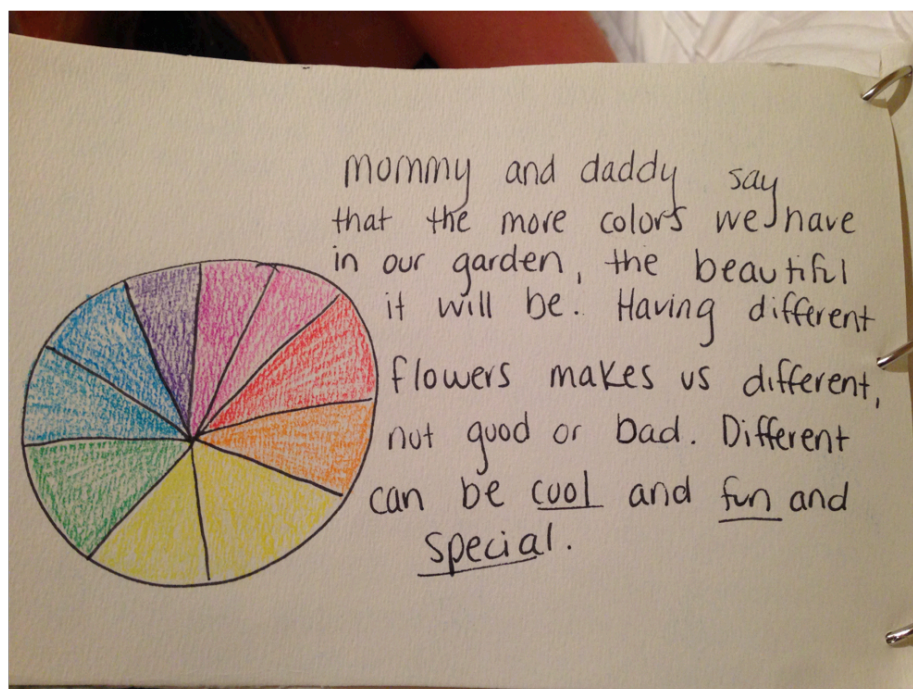 mommy and daddy say
that the more colors we have
in our garden, the beautiful
it will be. Having different
flowers makes us different,
not good or bad. Different
can be cool and fun and
special.